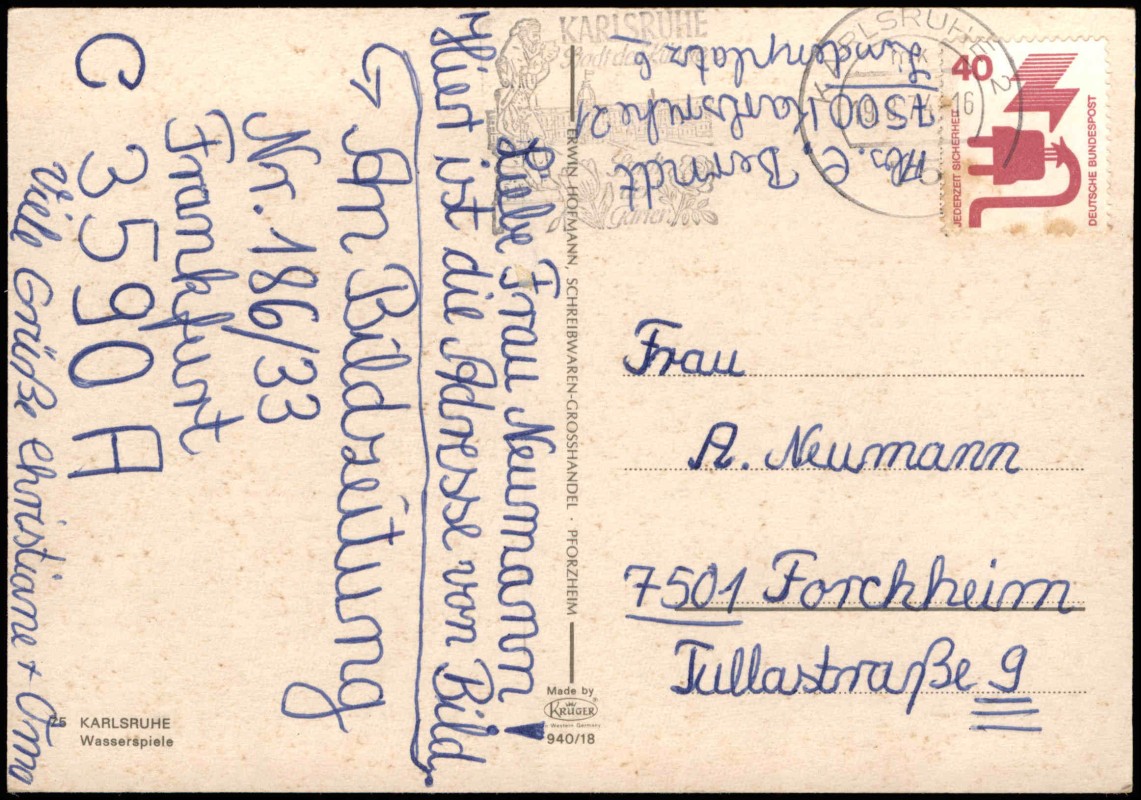 Liebe Frau Neumann!
Hier ist die Adresse von Bild.
An Bildzeitung
Nr. 186/33
Frankfurt
C 3590 A
Viele Grüße Christiane + Oma
Abs. C. Berndt
7500 Karlsruhe 21
Lindenplatz 6
KARLSRUHE
Stadt der
Gärten
KARLSRUHE 2
16
40
JEDERZEIT SICHERHEIT
DEUTSCHE BUNDESPOST
Frau
A. Neumann
7501 Forchheim
Tullastraße 9
ERWIN HOFMANN, SCHREIBWAREN-GROSSHANDEL · PFORZHEIM
Made by
KRÜGER
Western Germany
940/18
75 KARLSRUHE
Wasserspiele